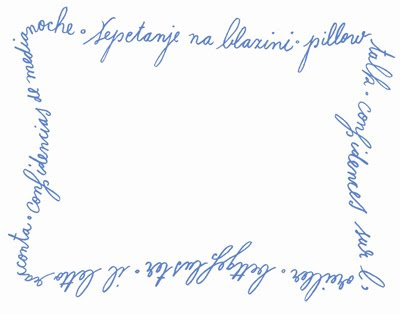 Šepetanje na blazini · pillow
talk · confidences sur l'
oreiller · bettgeflüster · il letto racconta ·
confidencias de medianoche ·